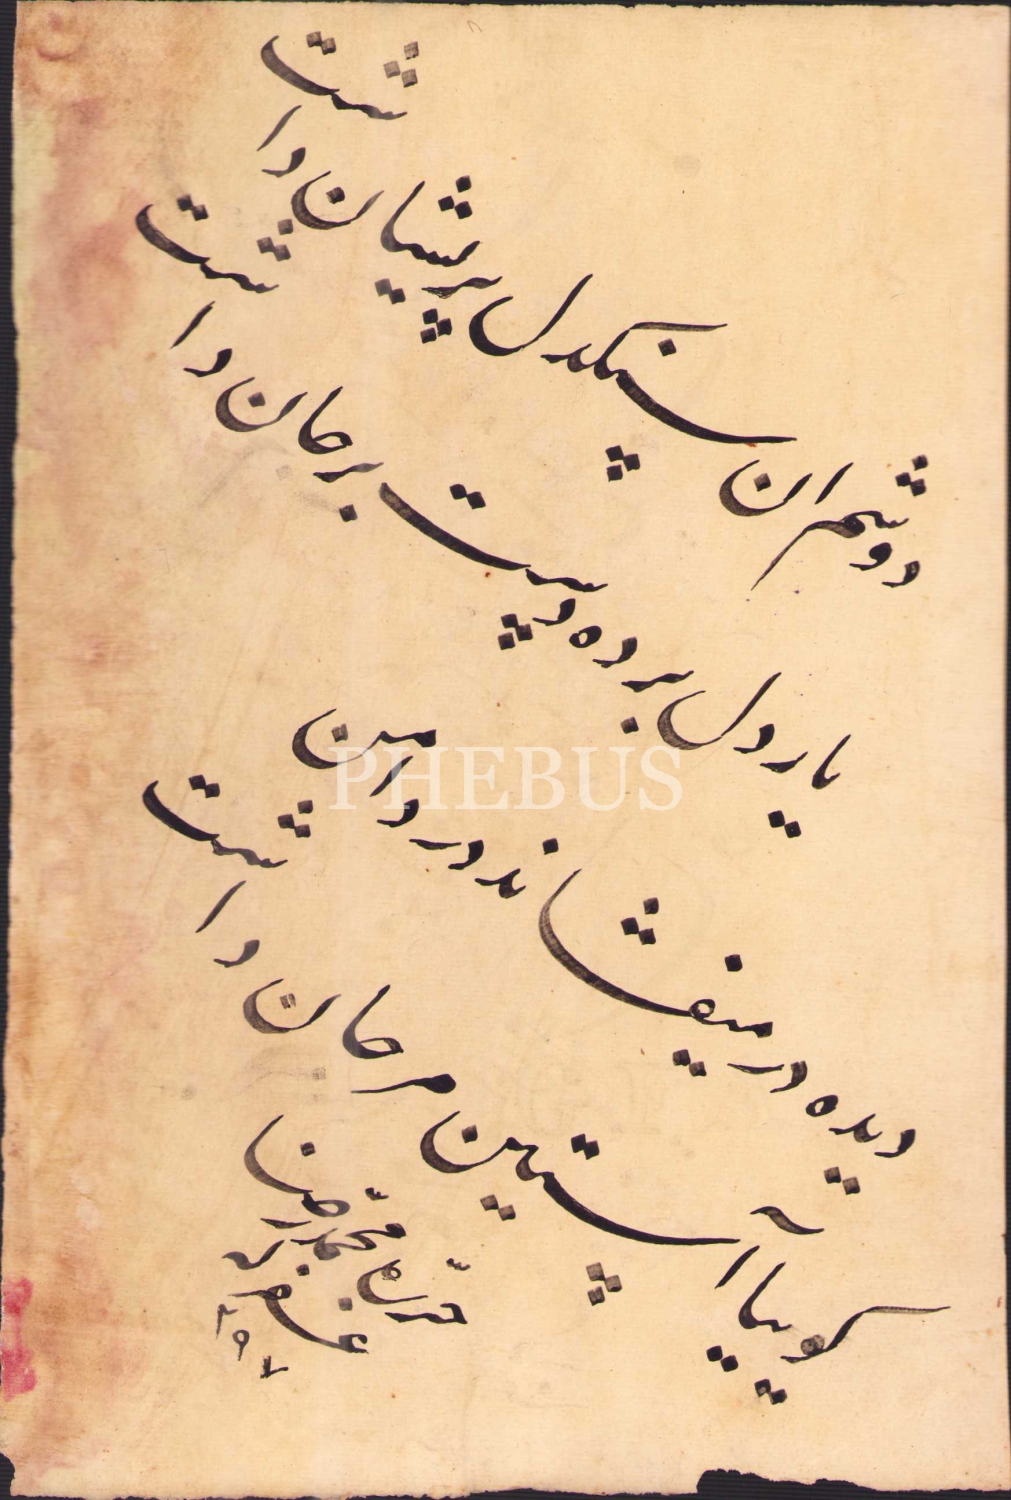 دوشم ران سنگدل پریشان داشت
یار دل برده دست بر جان داشت
دیده در میفشاند در دامن
گوییا آستین مرجان داشت
حرره محمد رضا
PHEBUS